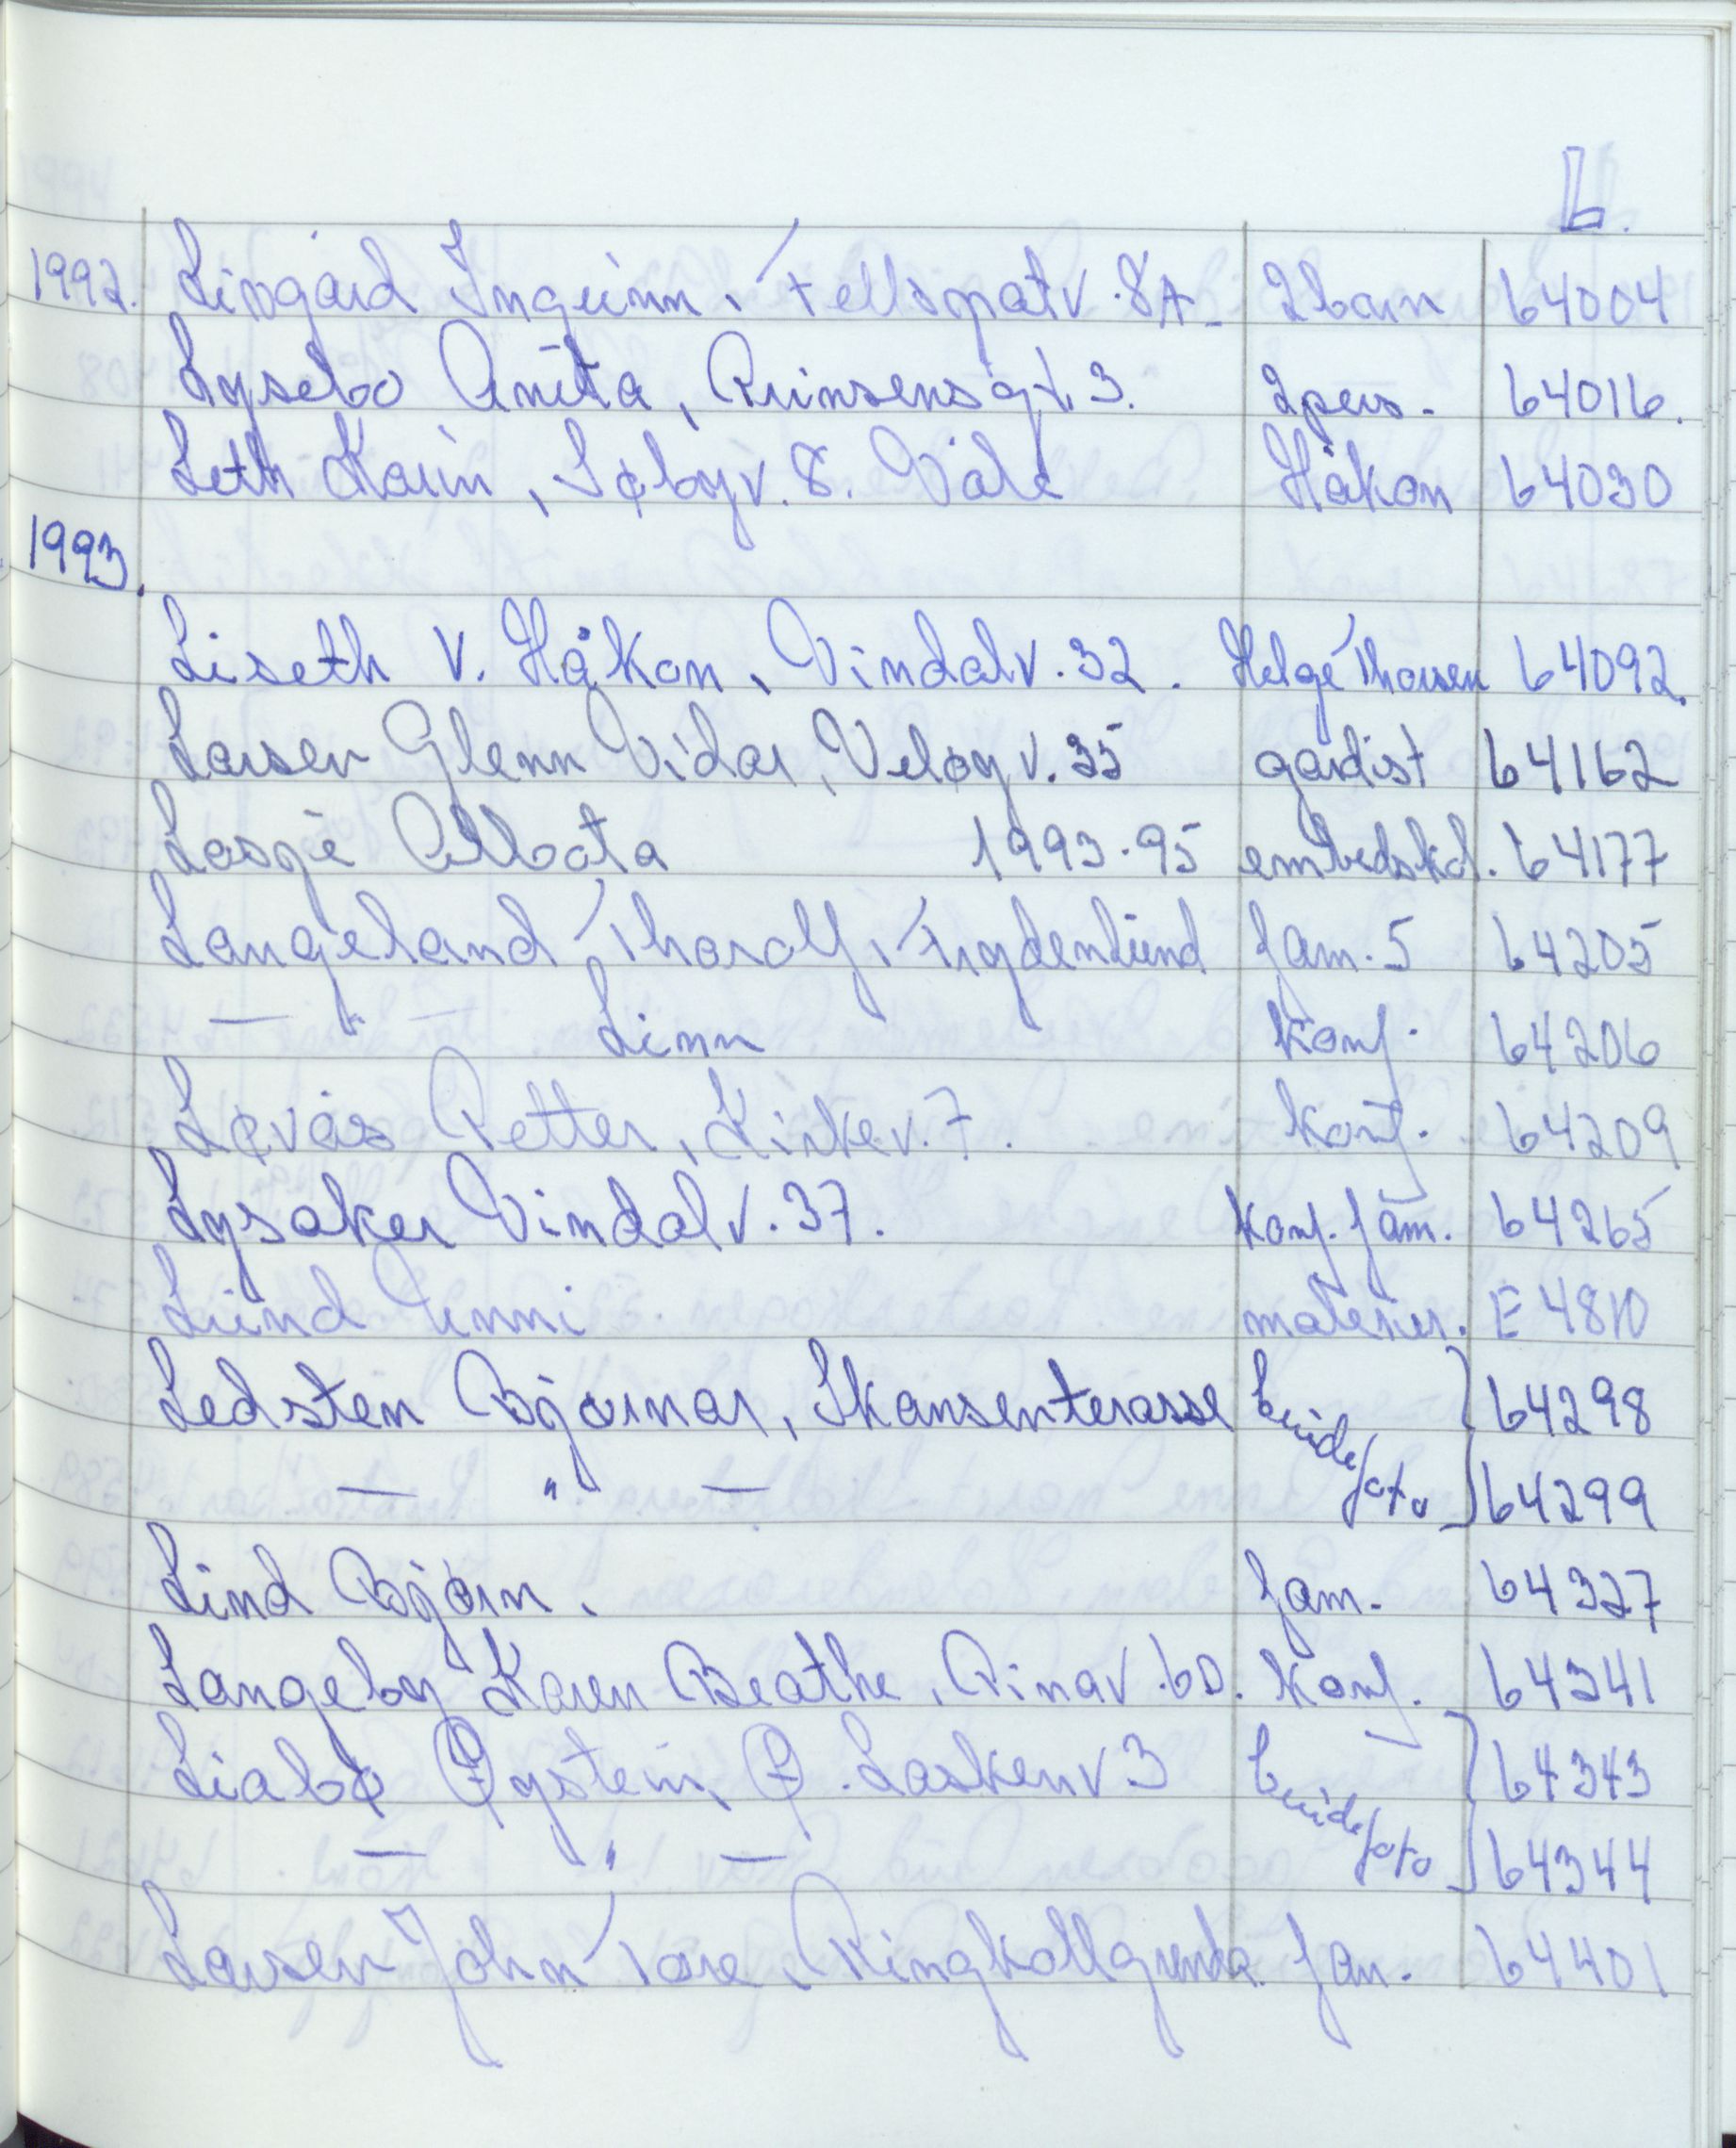 L.
1992. Livgård Ingunn, Feltspatv. 8A. 2 barn 64004
Lysebo Anita, Prinsensgt. 3. 2 pers. 64016.
Leth Karin, Søbyv. 8. Våle Håkon 64030
1993.
Liseth V. Håkon, Vindalv. 32. Helge Thorsen 64092.
Larsen Glenn Vidar, Veløyv. 35 gardist 64162
Losje Albata 1993-95 embedskol. 64177
Langeland Tharolf, Frydenlund fam. 5 64205
— " — Linn konf. 64206
Løvås Petter, Kirkev. 7. konf. 64209
Lysaker Vindalv. 37. konf. fam. 64265
Lund Unni malerier. E 4810
Ledsten Bjørnar, Skansenterasse brude 64298
— " — foto 64299
Lind Bjørn. fam. 64327
Langeby Karen Beathe, Rinav. 6D. konf. 64341
Liabø Øystein, Ø. Laskenv 3 brude 64343
— " — foto 64344
Larsen John Tore, Ringkollgrenda. fam. 64401